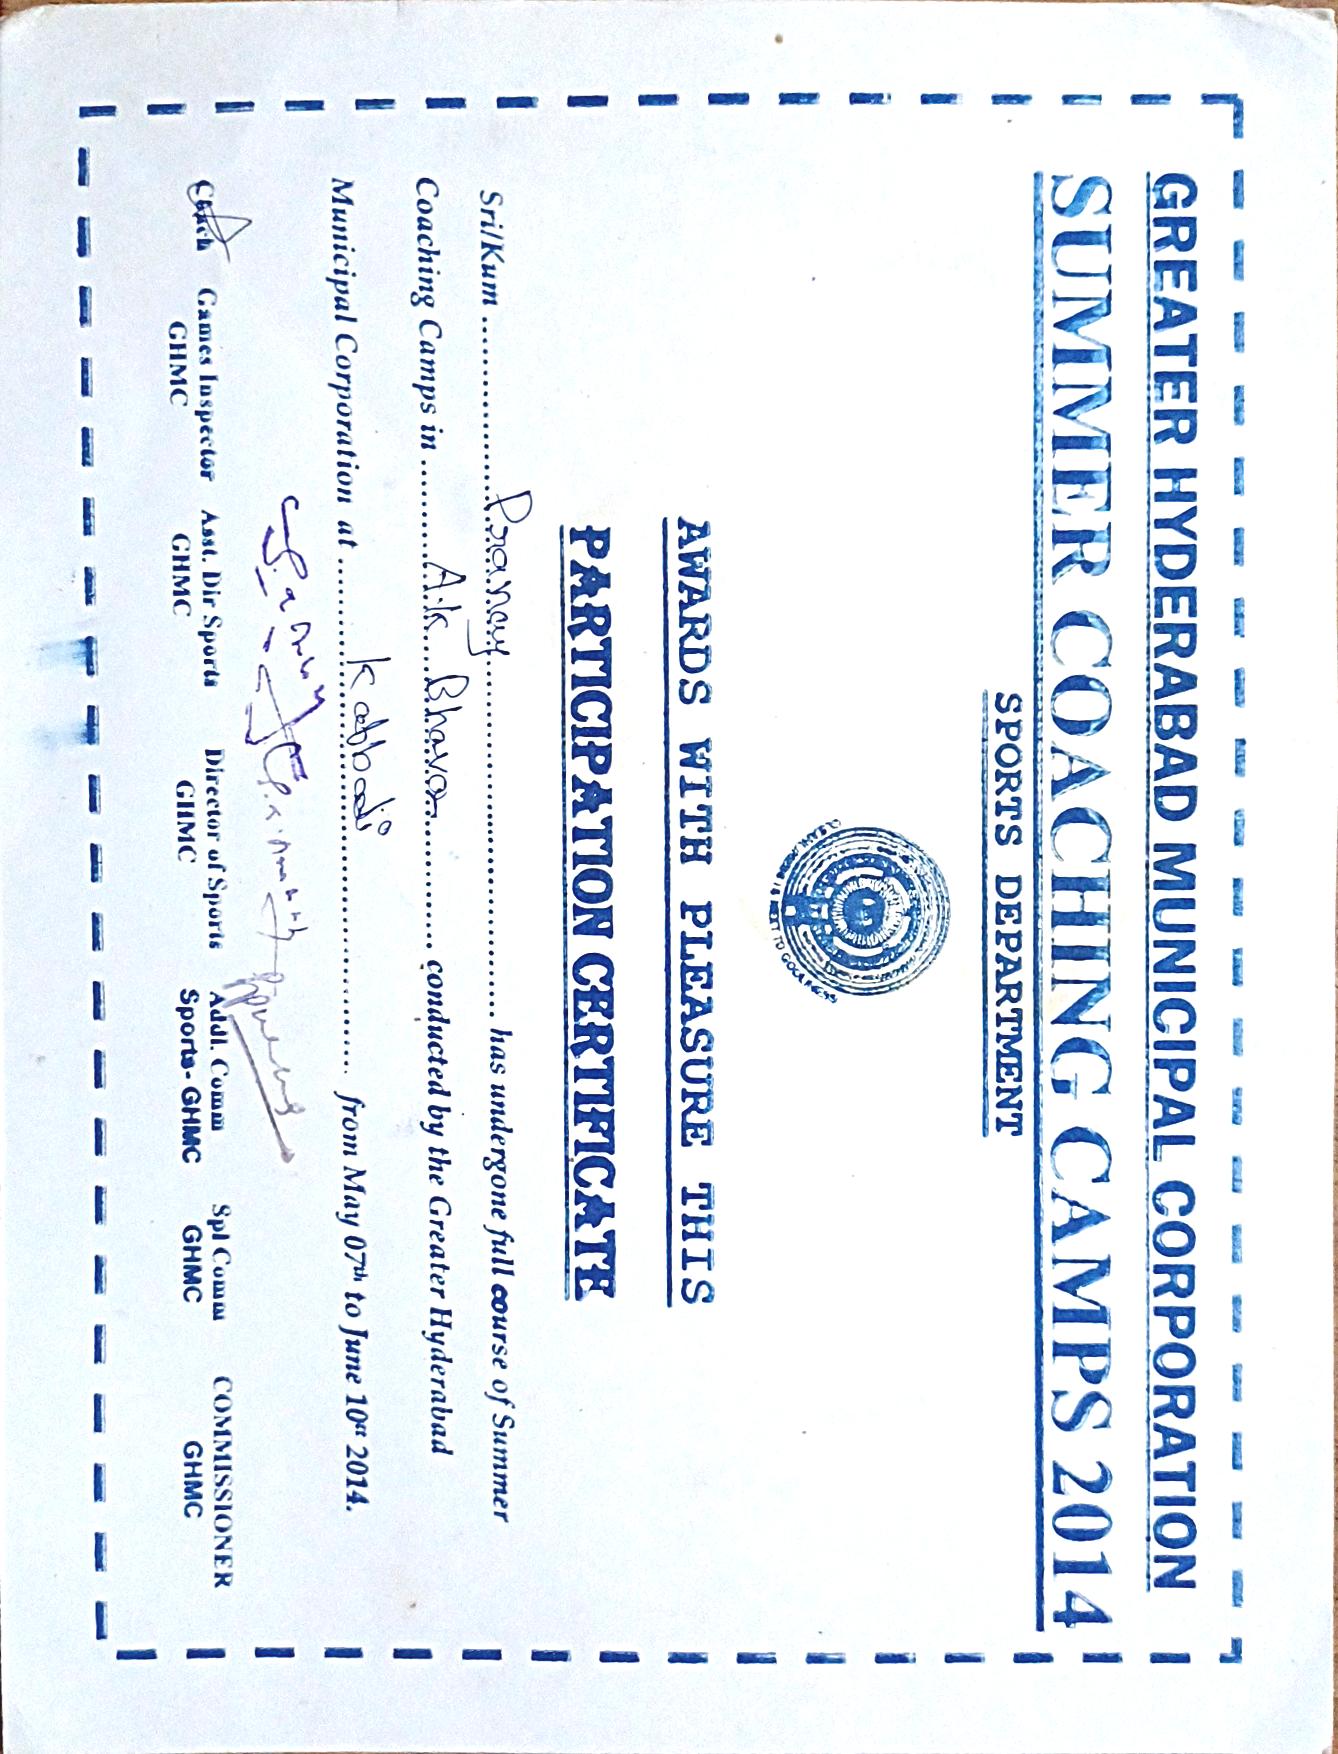 GREATER HYDERABAD MUNICIPAL CORPORATION
SUMMER COACHING CAMPS 2014
SPORTS DEPARTMENT
AWARDS WITH PLEASURE THIS
PARTICIPATION CERTIFICATE
Sri/Kum ........ Pranay ........ has undergone full course of Summer
Coaching Camps in ........ A.k. Bhavan ........ conducted by the Greater Hyderabad
Municipal Corporation at ........ kabbadi ........ from May 07th to June 10th 2014.
Coach Games Inspector Asst. Dir Sports Director of Sports Addl. Comm Spl Comm COMMISSIONER
GHMC GHMC GHMC Sports- GHMC GHMC GHMC